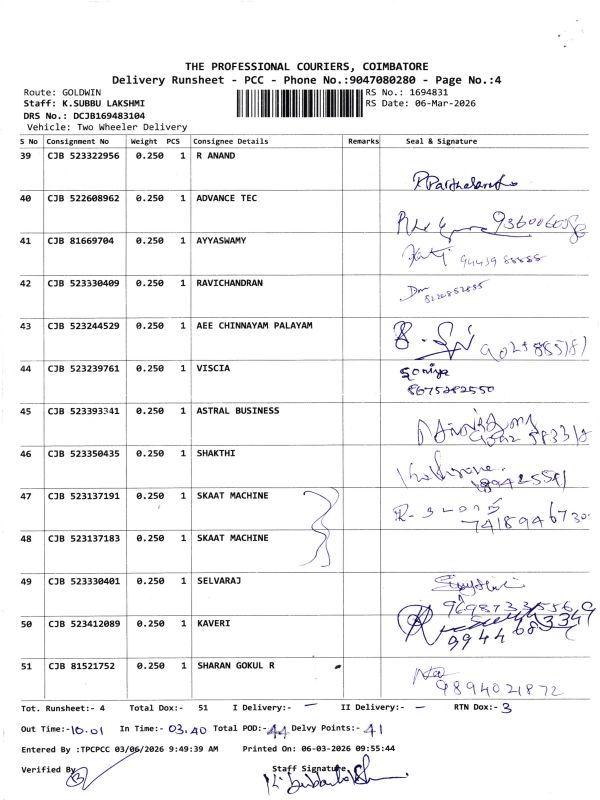 THE PROFESSIONAL COURIERS, COIMBATORE
Delivery Runsheet - PCC - Phone No.:9047080280 - Page No.:4
Route: GOLDWIN RS No.: 1694831
Staff: K.SUBBU LAKSHMI RS Date: 06-Mar-2026
DRS No.: DCJB169483104
Vehicle: Two Wheeler Delivery
S No Consignment No Weight PCS Consignee Details Remarks Seal & Signature
39 CJB 523322956 0.250 1 R ANAND
40 CJB 522608962 0.250 1 ADVANCE TEC
41 CJB 81669704 0.250 1 AYYASWAMY
42 CJB 523330409 0.250 1 RAVICHANDRAN
43 CJB 523244529 0.250 1 AEE CHINNAYAM PALAYAM
44 CJB 523239761 0.250 1 VISCIA Soniya
8675282550
45 CJB 523393341 0.250 1 ASTRAL BUSINESS
46 CJB 523350435 0.250 1 SHAKTHI
47 CJB 523137191 0.250 1 SKAAT MACHINE
7418946730
48 CJB 523137183 0.250 1 SKAAT MACHINE
49 CJB 523330401 0.250 1 SELVARAJ
50 CJB 523412089 0.250 1 KAVERI
51 CJB 81521752 0.250 1 SHARAN GOKUL R
9894021872
Tot. Runsheet:- 4 Total Dox:- 51 I Delivery:- — II Delivery:- — RTN Dox:- 3
Out Time:-10.01 In Time:- 03.40 Total POD:-44 Delvy Points:-41
Entered By :TPCPCC 03/06/2026 9:49:39 AM Printed On: 06-03-2026 09:55:44
Verified By Staff Signature